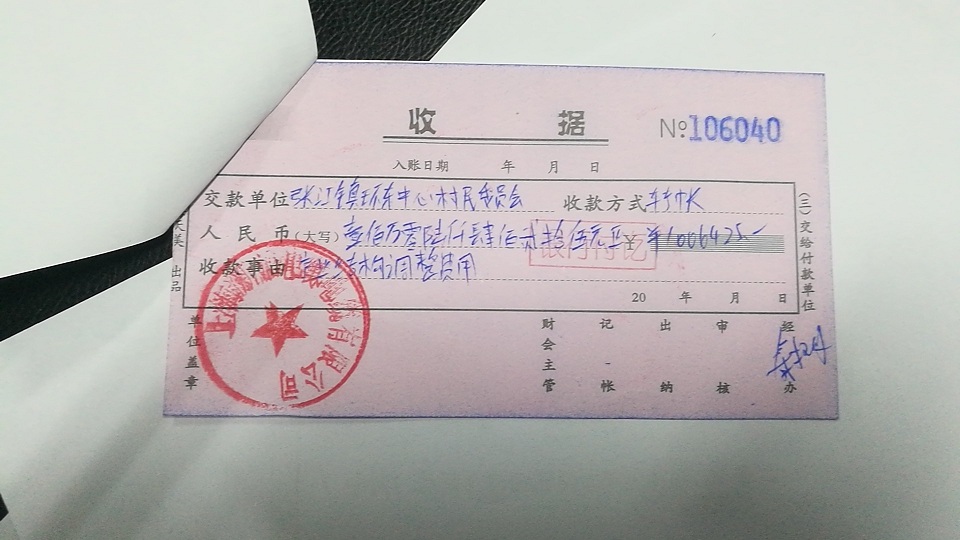 收 据
No106040
入账日期 年 月 日
交款单位 张江镇环东中心村民委员会 收款方式 转帐
人民币(大写) 壹佰万零陆仟肆佰贰拾伍元正 ¥ ¥1006425.-
收款事由 结构调整费用
20 年 月 日
(三)交给付款单位
出品
单位盖章
财会主管
记帐
出纳
审核
经办
上海 有限公司